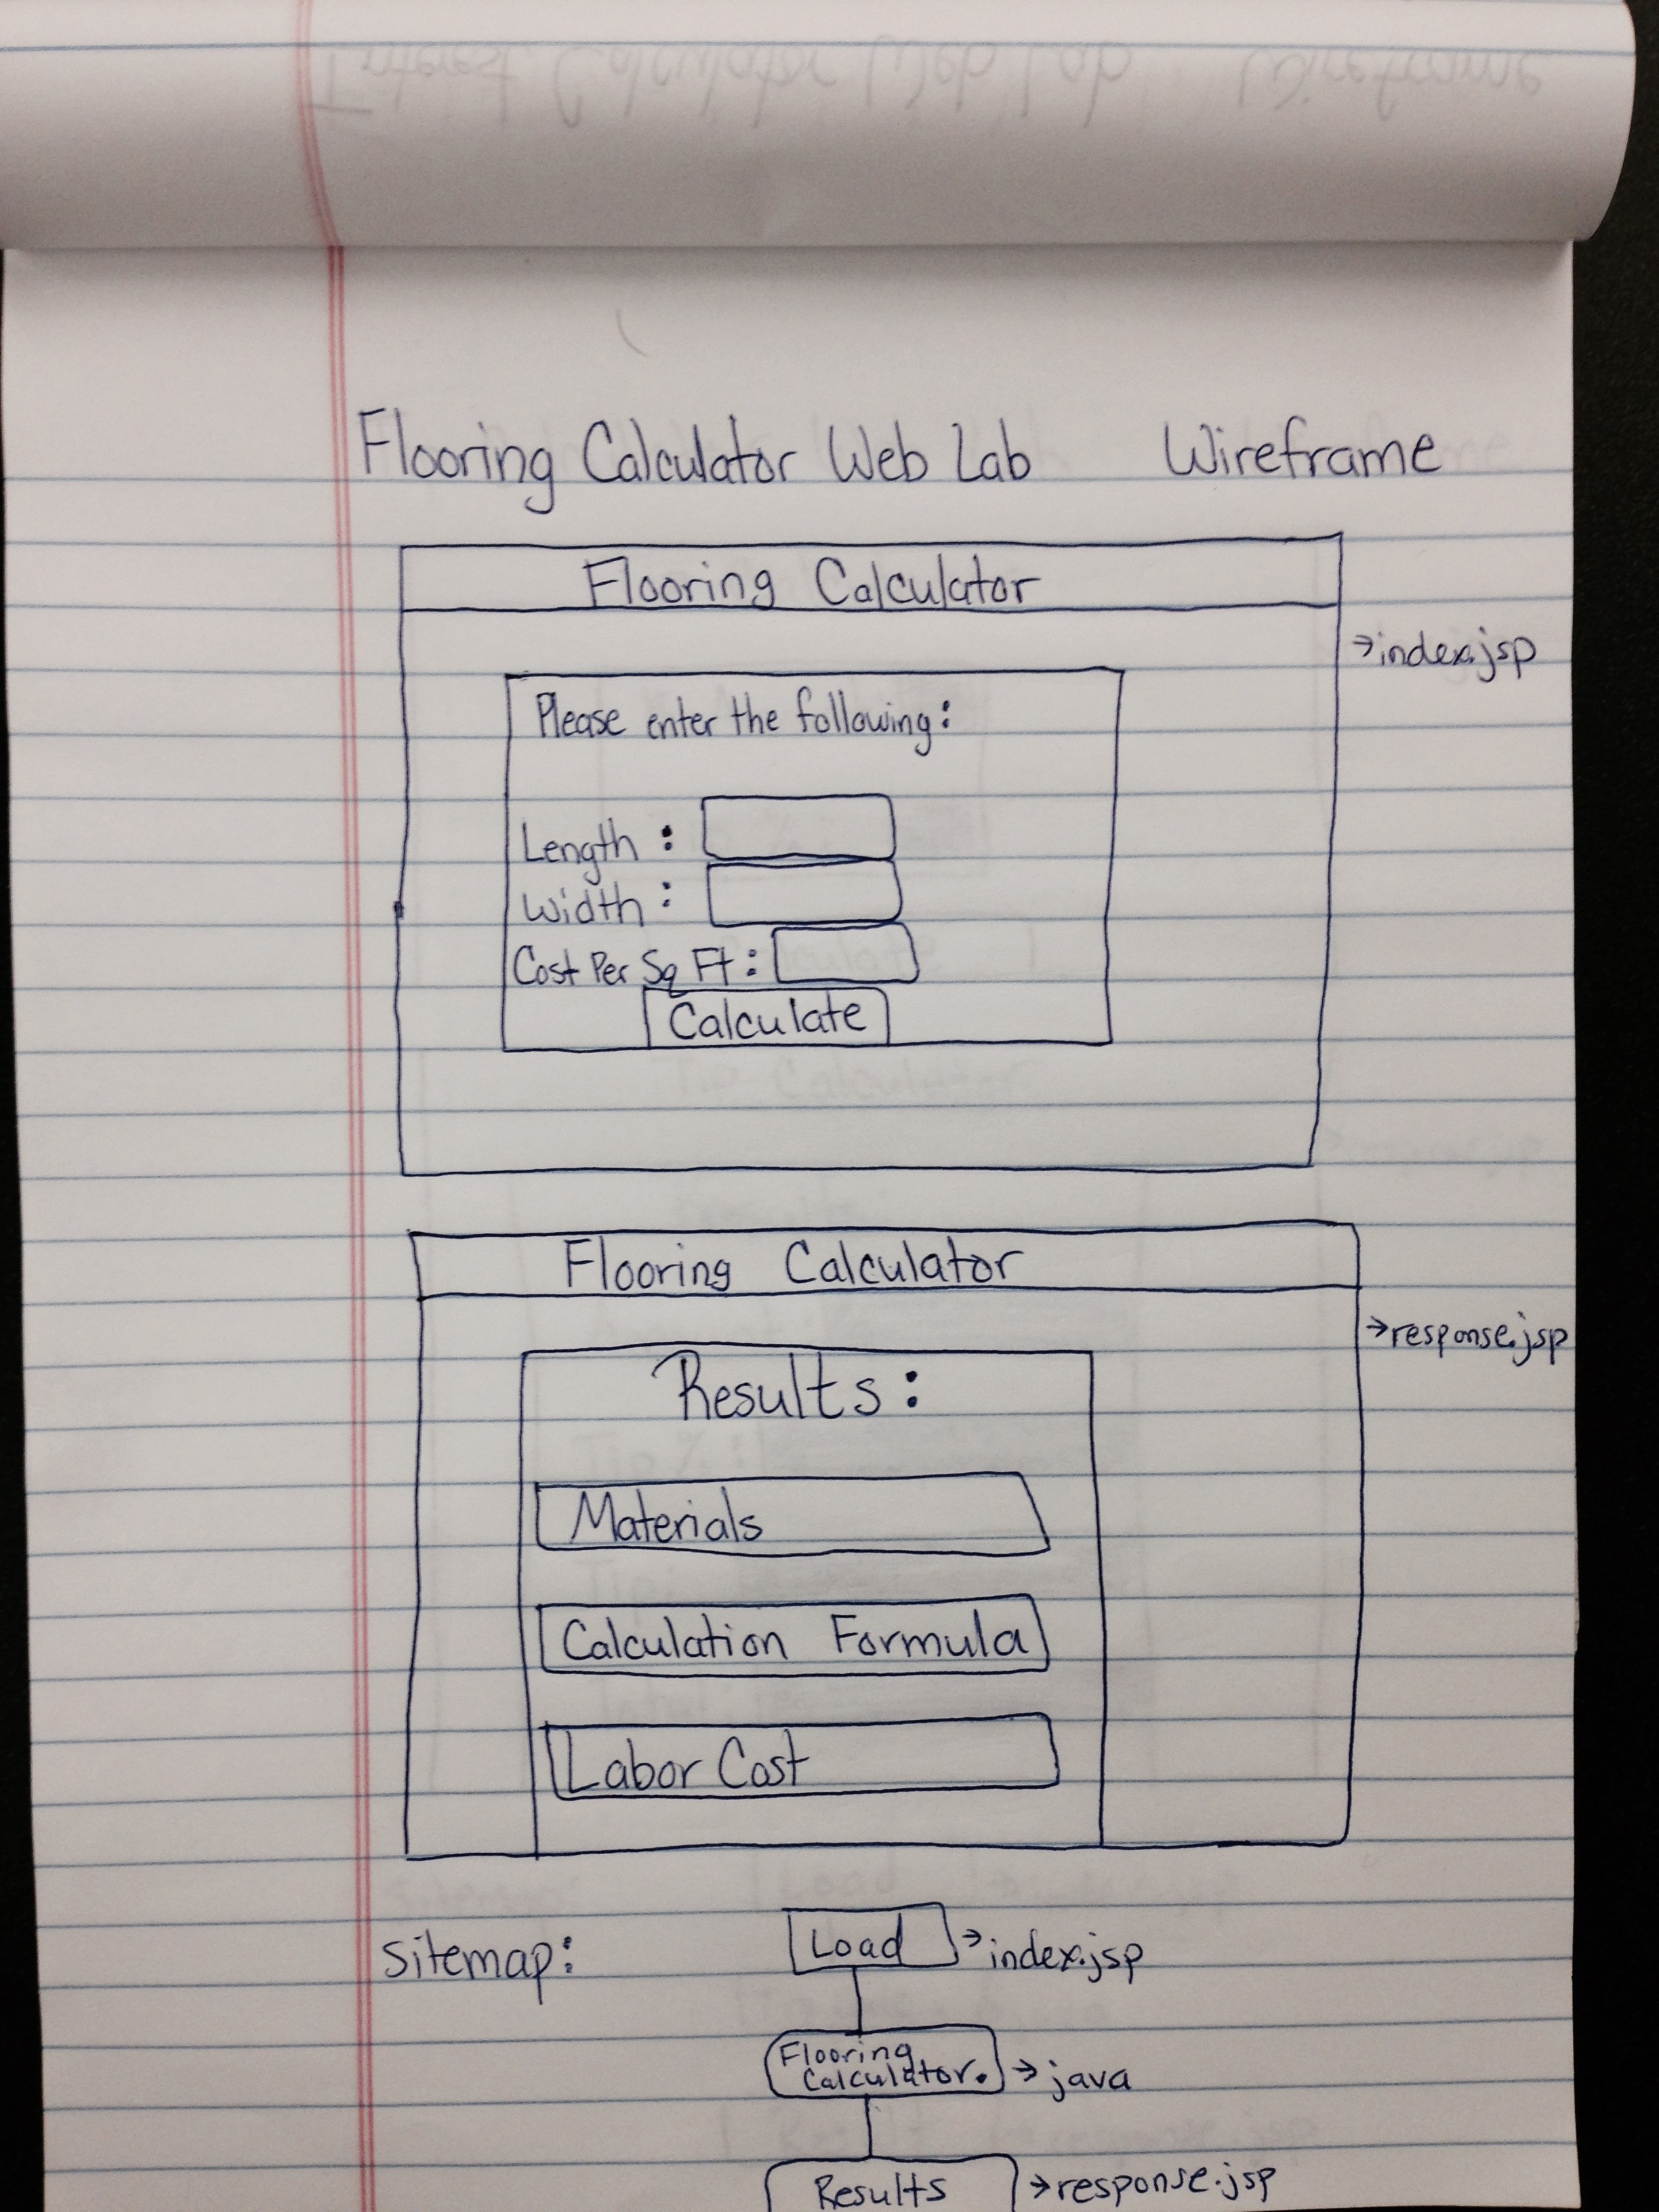 Interest Calculator Web Lab Wireframe
Flooring Calculator Web Lab Wireframe
Flooring Calculator
→index.jsp
Please enter the following:
Length :
Width :
Cost Per Sq Ft :
Calculate
Flooring Calculator
→response.jsp
Results :
Materials
Calculation Formula
Labor Cost
Sitemap:
Load →index.jsp
Flooring
Calculator. →java
Results →response.jsp